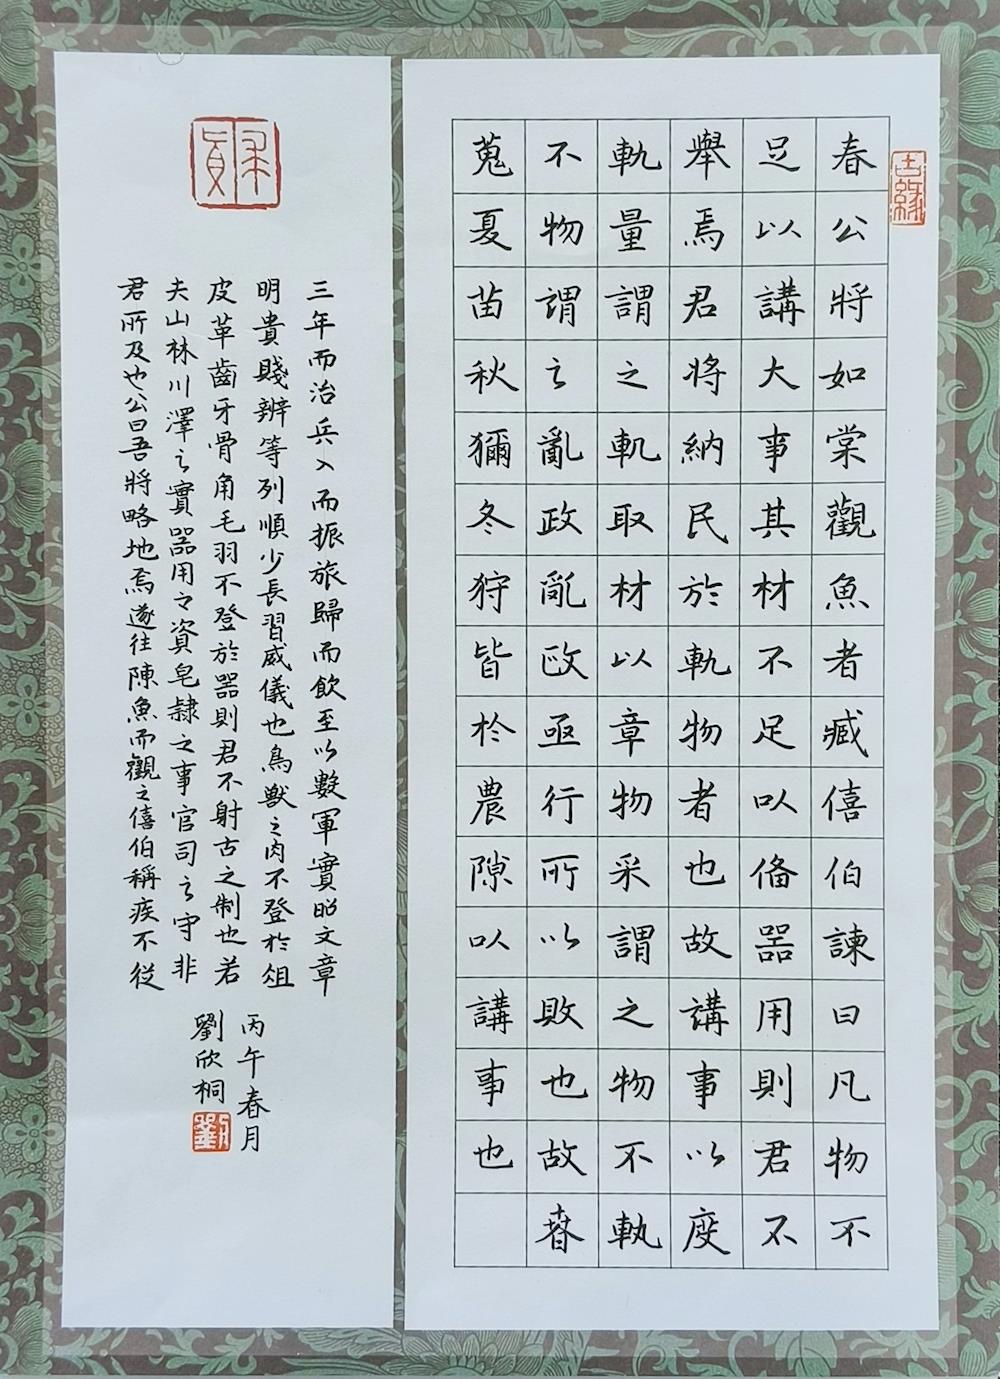 古緣
春公將如棠觀魚者臧僖伯諫曰凡物不
足以講大事其材不足以俻器用則君不
舉焉君将納民於軌物者也故講事以度
軌量謂之軌取材以章物采謂之物不軌
不物謂之亂政亂政亟行所以敗也故春
蒐夏苗秋獮冬狩皆於農隙以講事也
三年而治兵入而振旅歸而飲至以數軍實昭文章
明貴賤辨等列順少長習威儀也鳥獸之肉不登於俎
皮革齒牙骨角毛羽不登於器則君不射古之制也若
夫山林川澤之實器用之資皂隸之事官司之守非
君所及也公曰吾將略地焉遂往陳魚而觀之僖伯稱疾不從
丙午春月
劉欣桐
劉